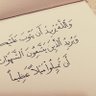 وَاللَّهُ يُرِيدُ أَن يَتُوبَ عَلَيْكُمْ
وَيُرِيدُ الَّذِينَ يَتَّبِعُونَ الشَّهَوَاتِ
أَن تَمِيلُوا مَيْلًا عَظِيمًا